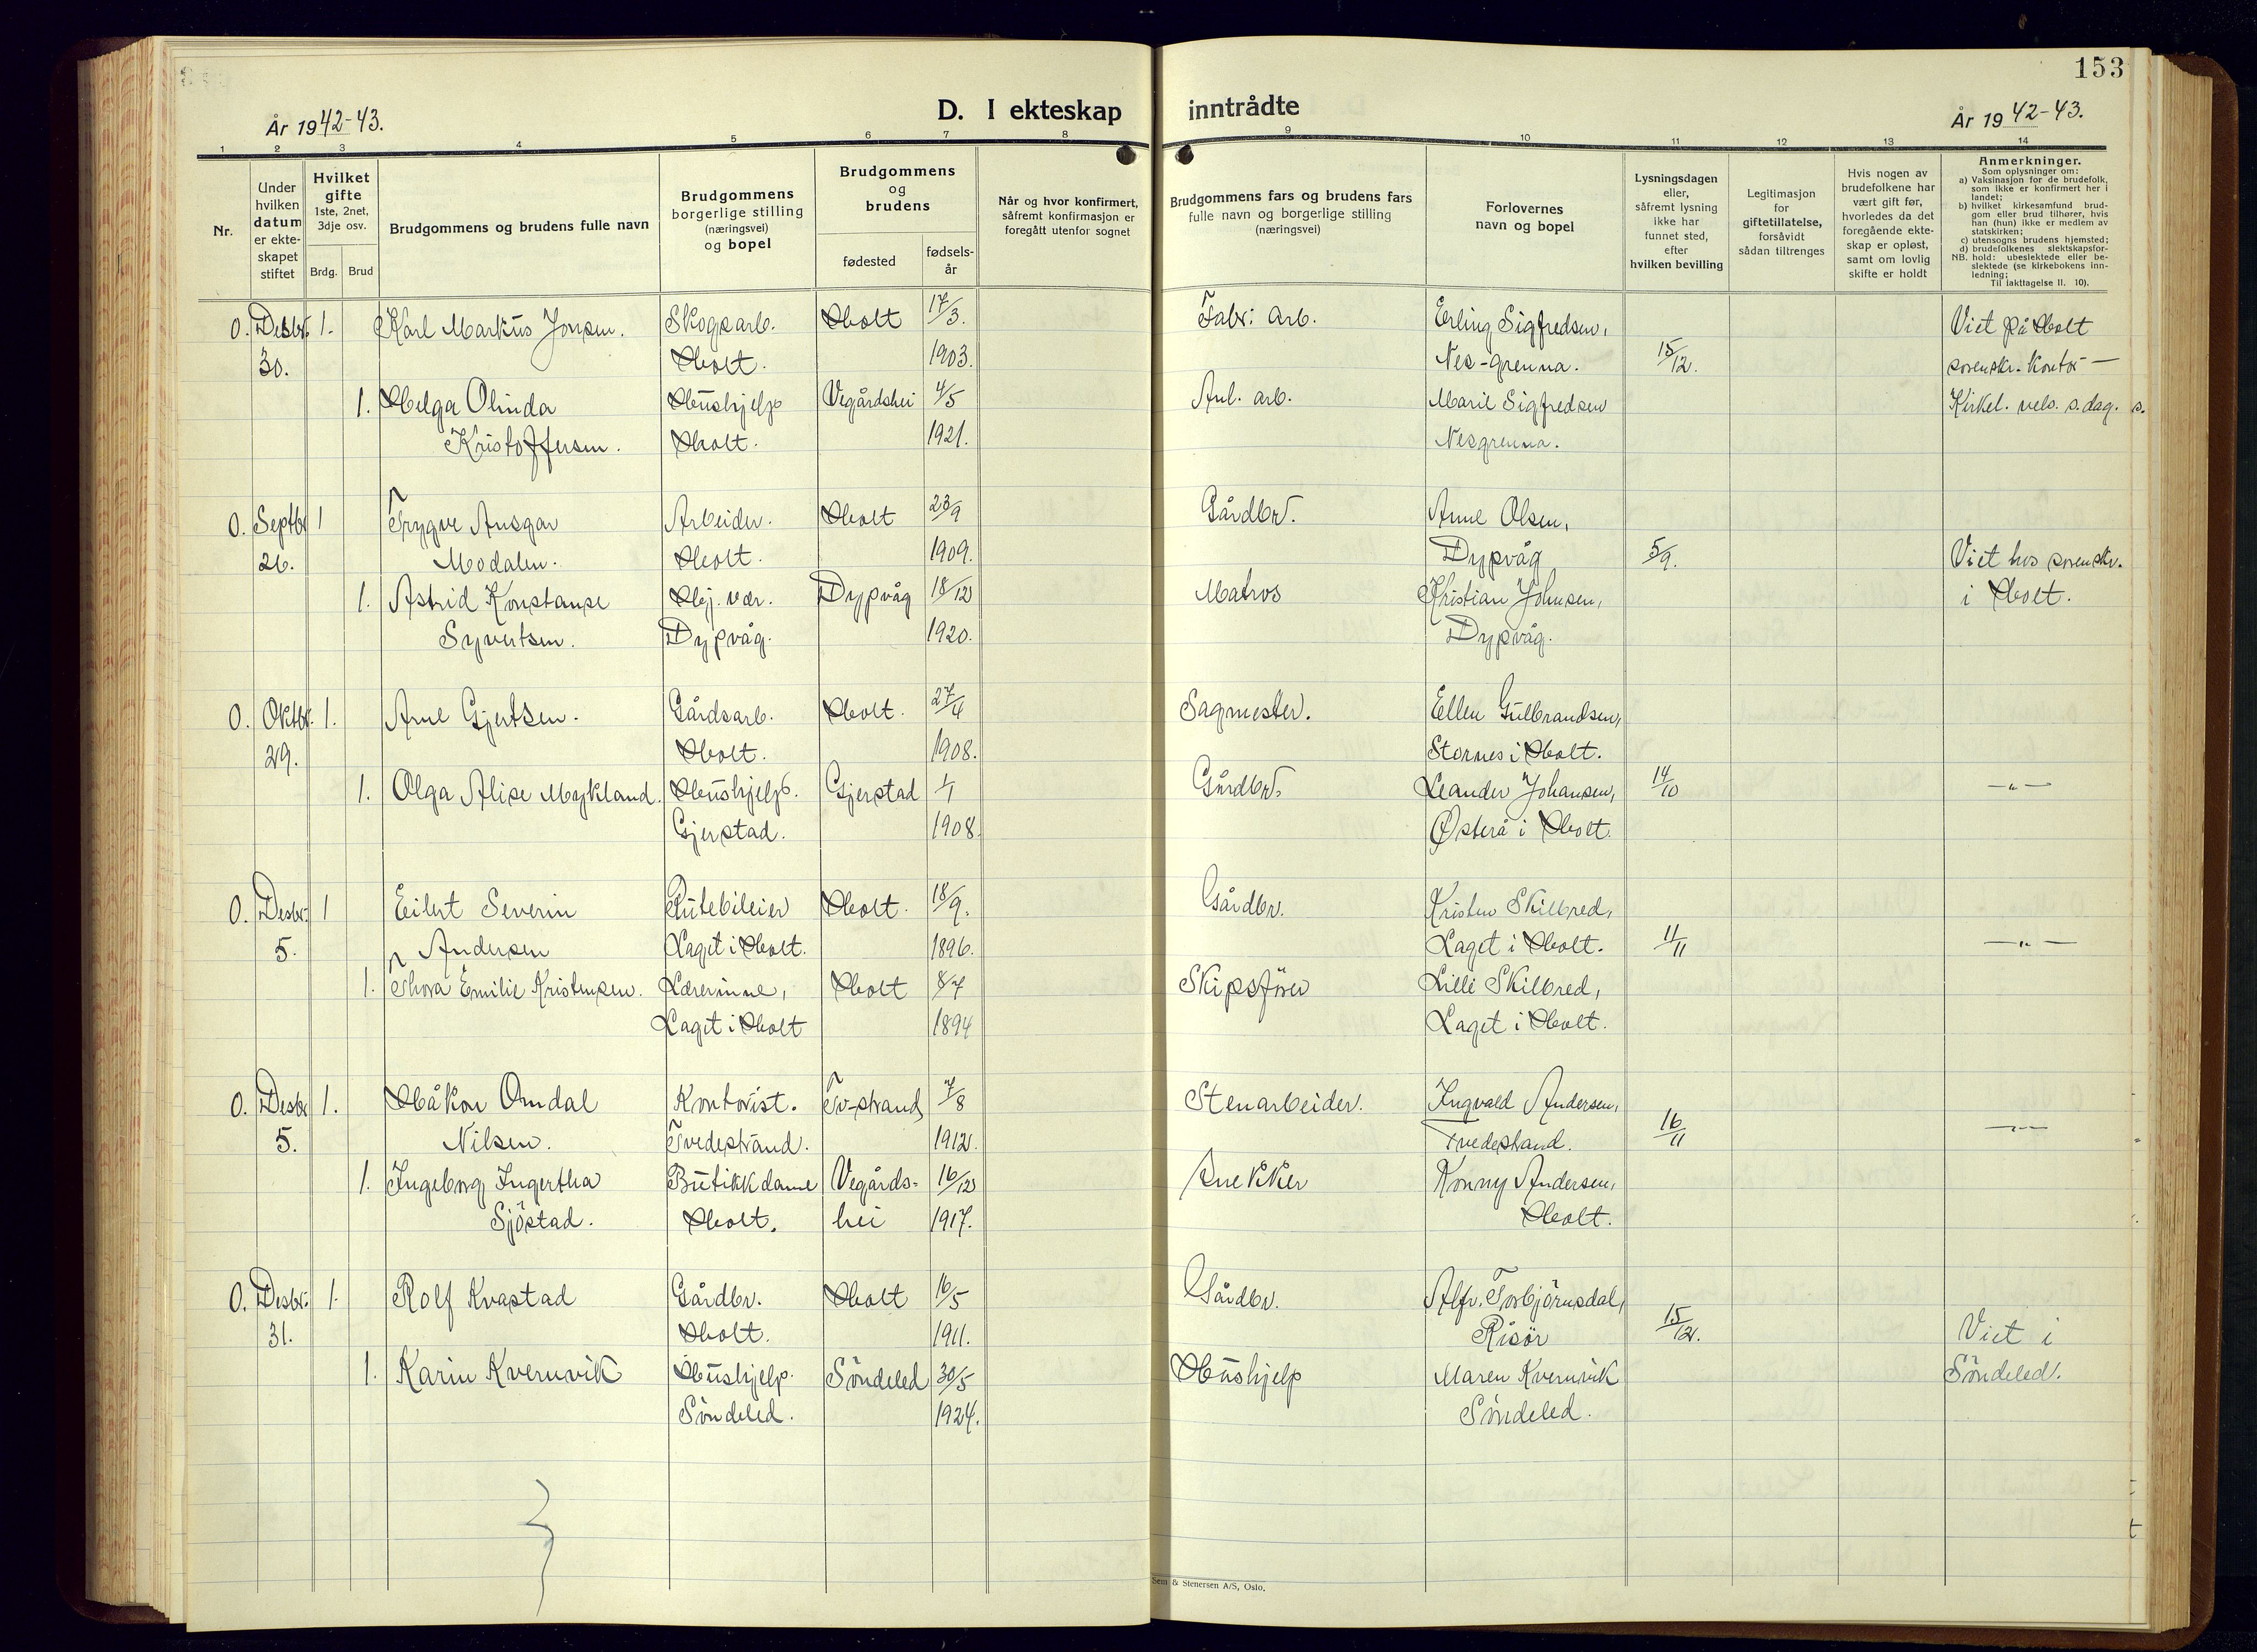 153
År 1942-43.
D. I ekteskap
inntrådte
År 1942-43.
1 2 3 4 5 6 7 8 9 10 11 12 13 14
Nr.
Under hvilken datum er ekteskapet stiftet
Hvilket gifte
1ste, 2net, 3dje osv.
Brdg. Brud
Brudgommens og brudens fulle navn
Brudgommens borgerlige stilling (næringsvei) og bopel
Brudgommens og brudens
fødested
fødsels-år
Når og hvor konfirmert, såfremt konfirmasjon er foregått utenfor sognet
Brudgommens fars og brudens fars fulle navn og borgerlige stilling (næringsvei)
Forlovernes navn og bopel
Lysningsdagen eller, såfremt lysning ikke har funnet sted, efter hvilken bevilling
Legitimasjon for giftetillatelse, forsåvidt sådan tiltrenges
Hvis nogen av brudefolkene har vært gift før, hvorledes da det foregående ekteskap er opløst, samt om lovlig skifte er holdt
Anmerkninger.
Som oplysninger om:
a) Vaksinasjon for de brudefolk, som ikke er konfirmert her i landet;
b) hvilket kirkesamfund brudgom eller brud tilhører, hvis han (hun) ikke er medlem av statskirken;
c) utensogns brudens hjemsted;
d) brudefolkenes slektskapsforhold: ubeslektede eller beslektede (se kirkebokens innledning;
NB.
Til iakttagelse II. 10).
0. Desbr. 1. Karl Markus Jonsen. Skogsarb. Holt 17/3. Fabr. arb. Erling Sigfredsen, Viet på Holt
30. Holt. 1903. Nes-grenna. 15/12. sorenskr. kontor —
1. Helga Olinda Hushjelp Vegårdshei 4/5 Anl. arb. Marie Sigfredsen Kirkel. vels. s.dag. s.
Kristoffersen. Holt. 1921. Nesgrenna.
0. Septbr 1 Trygve Ansgar Arbeider. Holt 23/9 Gårdbr. Arne Olsen,
26. Modalen. Holt. 1909. Dypvåg 5/9. Viet hos sorenskr.
1. Astrid Konstanse Hj. vær. Dypvåg 18/12 Matros Kristian Johnsen, i Holt.
Syvertsen. Dypvåg. 1920. Dypvåg.
0. Oktbr. 1. Arne Gjertsen. Gårdsarb. Holt. 27/4 Sagmester. Ellen Gulbrandsen,
29. Holt. 1908. Stornes i Holt.
1. Olga Alise Mykland. Hushjelp. Gjerstad 1/1 Gårdbr. Leander Johansen, 14/10 —"—
Gjerstad. 1908. Østerå i Holt.
0. Desbr. 1 Eilert Severin Rutebileier Holt. 18/9. Gårdbr. Kristen Skilbred,
5. Andersen Laget i Holt. 1896. Laget i Holt. 11/11 —"—
1. Thora Emilie Kristensen. Lærerinne, Holt 8/7 Skipsfører Lilli Skilbred,
Laget i Holt 1894 Laget i Holt.
0. Desbr 1. Håkon Omdal Kontorist. Tv-strand 7/8 Stenarbeider. Ingvald Andersen,
5. Nilsen. Tvedestrand. 1912. Tvedestand. 16/11 —"—
1. Ingeborg Ingertha Butikkdame Vegårds- 16/12 Snekker Konny Andersen,
Sjøstad. Holt. hei 1917. Holt.
0. Desbr. 1. Rolf Kvastad Gårdbr. Holt 16/5 Gårdbr. Alfr. Torbjørnsdal,
31. Holt. 1911. Risør 15/12. Viet i
1. Karin Kvernvik Hushjelp. Søndeled 30/5 Hushjelp Maren Kvernvik Søndeled.
Søndeled. 1924. Søndeled.
Sem & Stenersen A/S, Oslo.